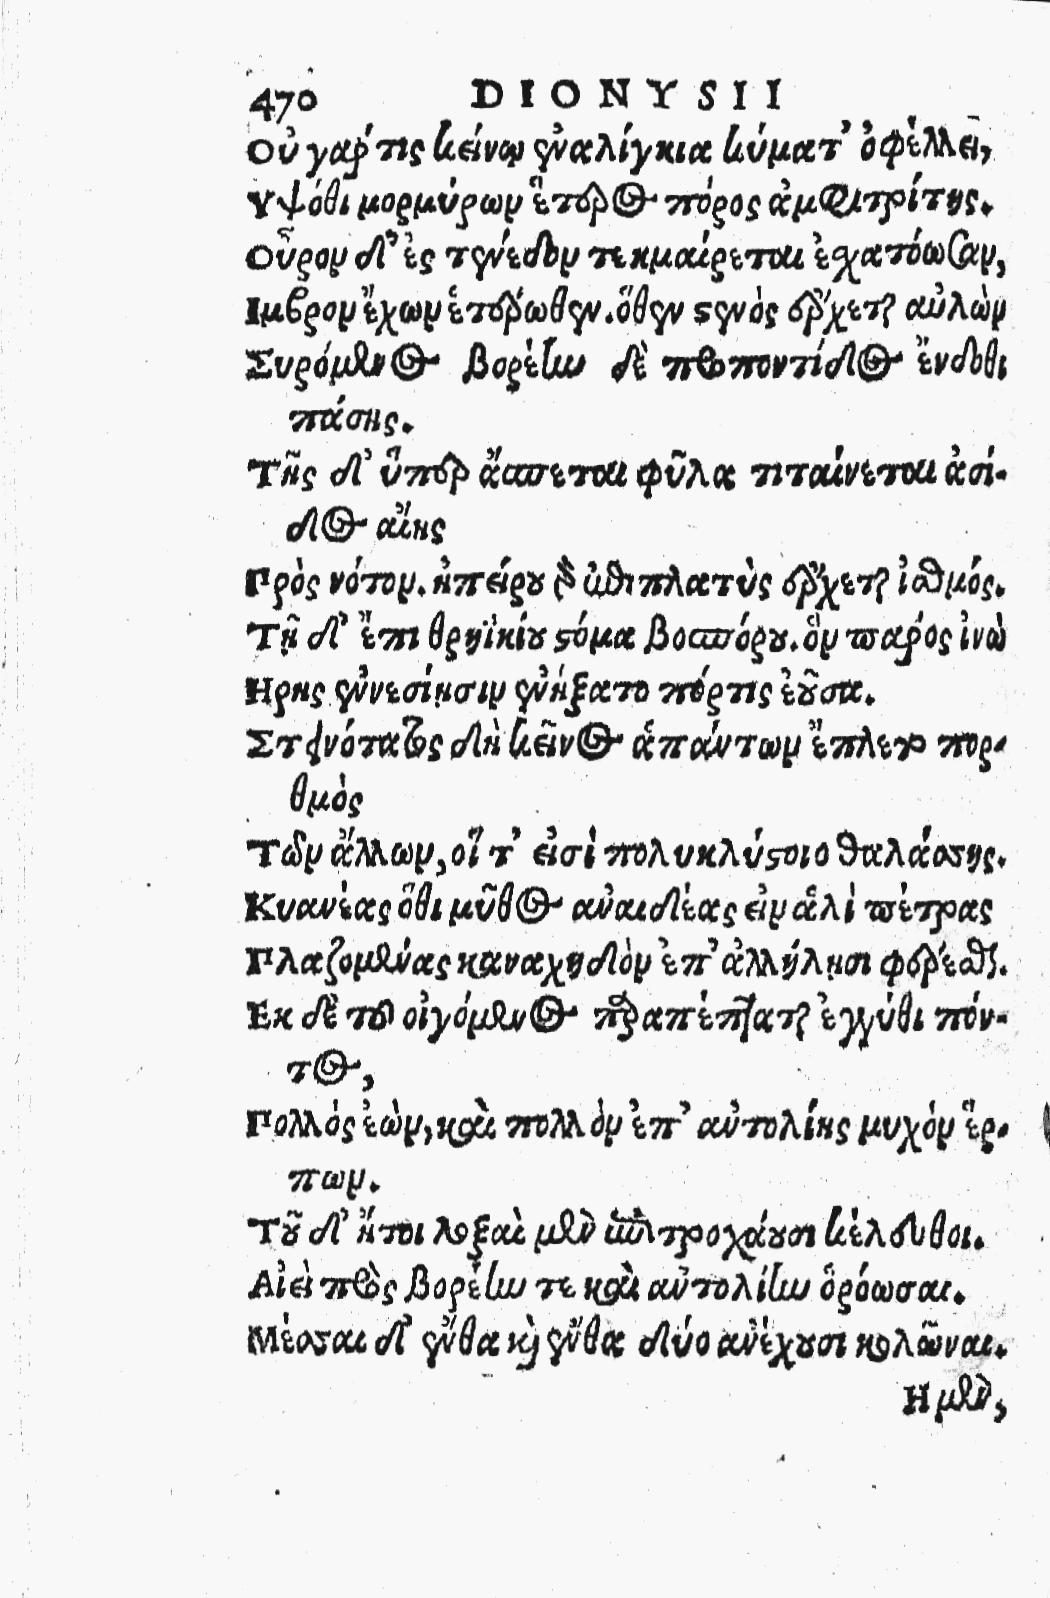 470 DIONYSII
Οὐ γάρ τις κείνῳ ἐναλίγκια κύματ' ὀφέλλει,
Ὑψόθι μορμύρων ἕτερος πόρος ἀμφιτρίτης.
Οὖρον δ' ἐς τένεδον τεκμαίρεται ἐσχατόωσαν,
Ιμβρον ἔχων ἑτέρωθεν. ὅθεν στενὸς ἔρχεται αὐλὼν
Συρόμενος βορέην δὲ προποντίδος ἔνδοθι
πάσης.
Τῆς δ' ὕπερ ἄσπεται φῦλα τιταίνεται ἀσί-
δος αἴης
Πρὸς νότον. ἠπείρου
πλατὺς ἔρχεται ἰσθμός.
Τῇ δ' ἔπι θρηϊκίου στόμα βοσπόρου. ὃν πάρος ἰνὼ
Ηρης ἐννεσίῃσιν ἐνήξατο πόρτις ἐοῦσα.
Στεινότατος δὴ κεῖνος ἁπάντων ἔπλετο πορ-
θμὸς
Τῶν ἄλλων, οἵ τ' εἰσὶ πολυκλύστοιο θαλάσσης.
Κυανέας ὅθι μῦθος ἀναιδέας εἰν ἁλὶ πέτρας
Πλαζομένας καναχηδὸν ἐπ' ἀλλήλῃσι φέρεσθαι.
Εκ δὲ τοῦ οἰγόμενος παραπέπταται ἐγγύθι πόν-
τος,
Πολλὸς ἐὼν, καὶ πολλὸν ἐπ' αὐτολίης μυχὸν ἕρ-
πων.
Τοῦ δ' ἤτοι λοξαὶ μὲν ἐπιτροχάουσι κέλευθοι.
Αἰεὶ πρὸς βορέην τε καὶ αὐτολίην ὁρόωσαι.
Μέσσαι δ' ἔνθα καὶ ἔνθα δύο ἀνέχουσι κολῶναι.
Η μὲν,